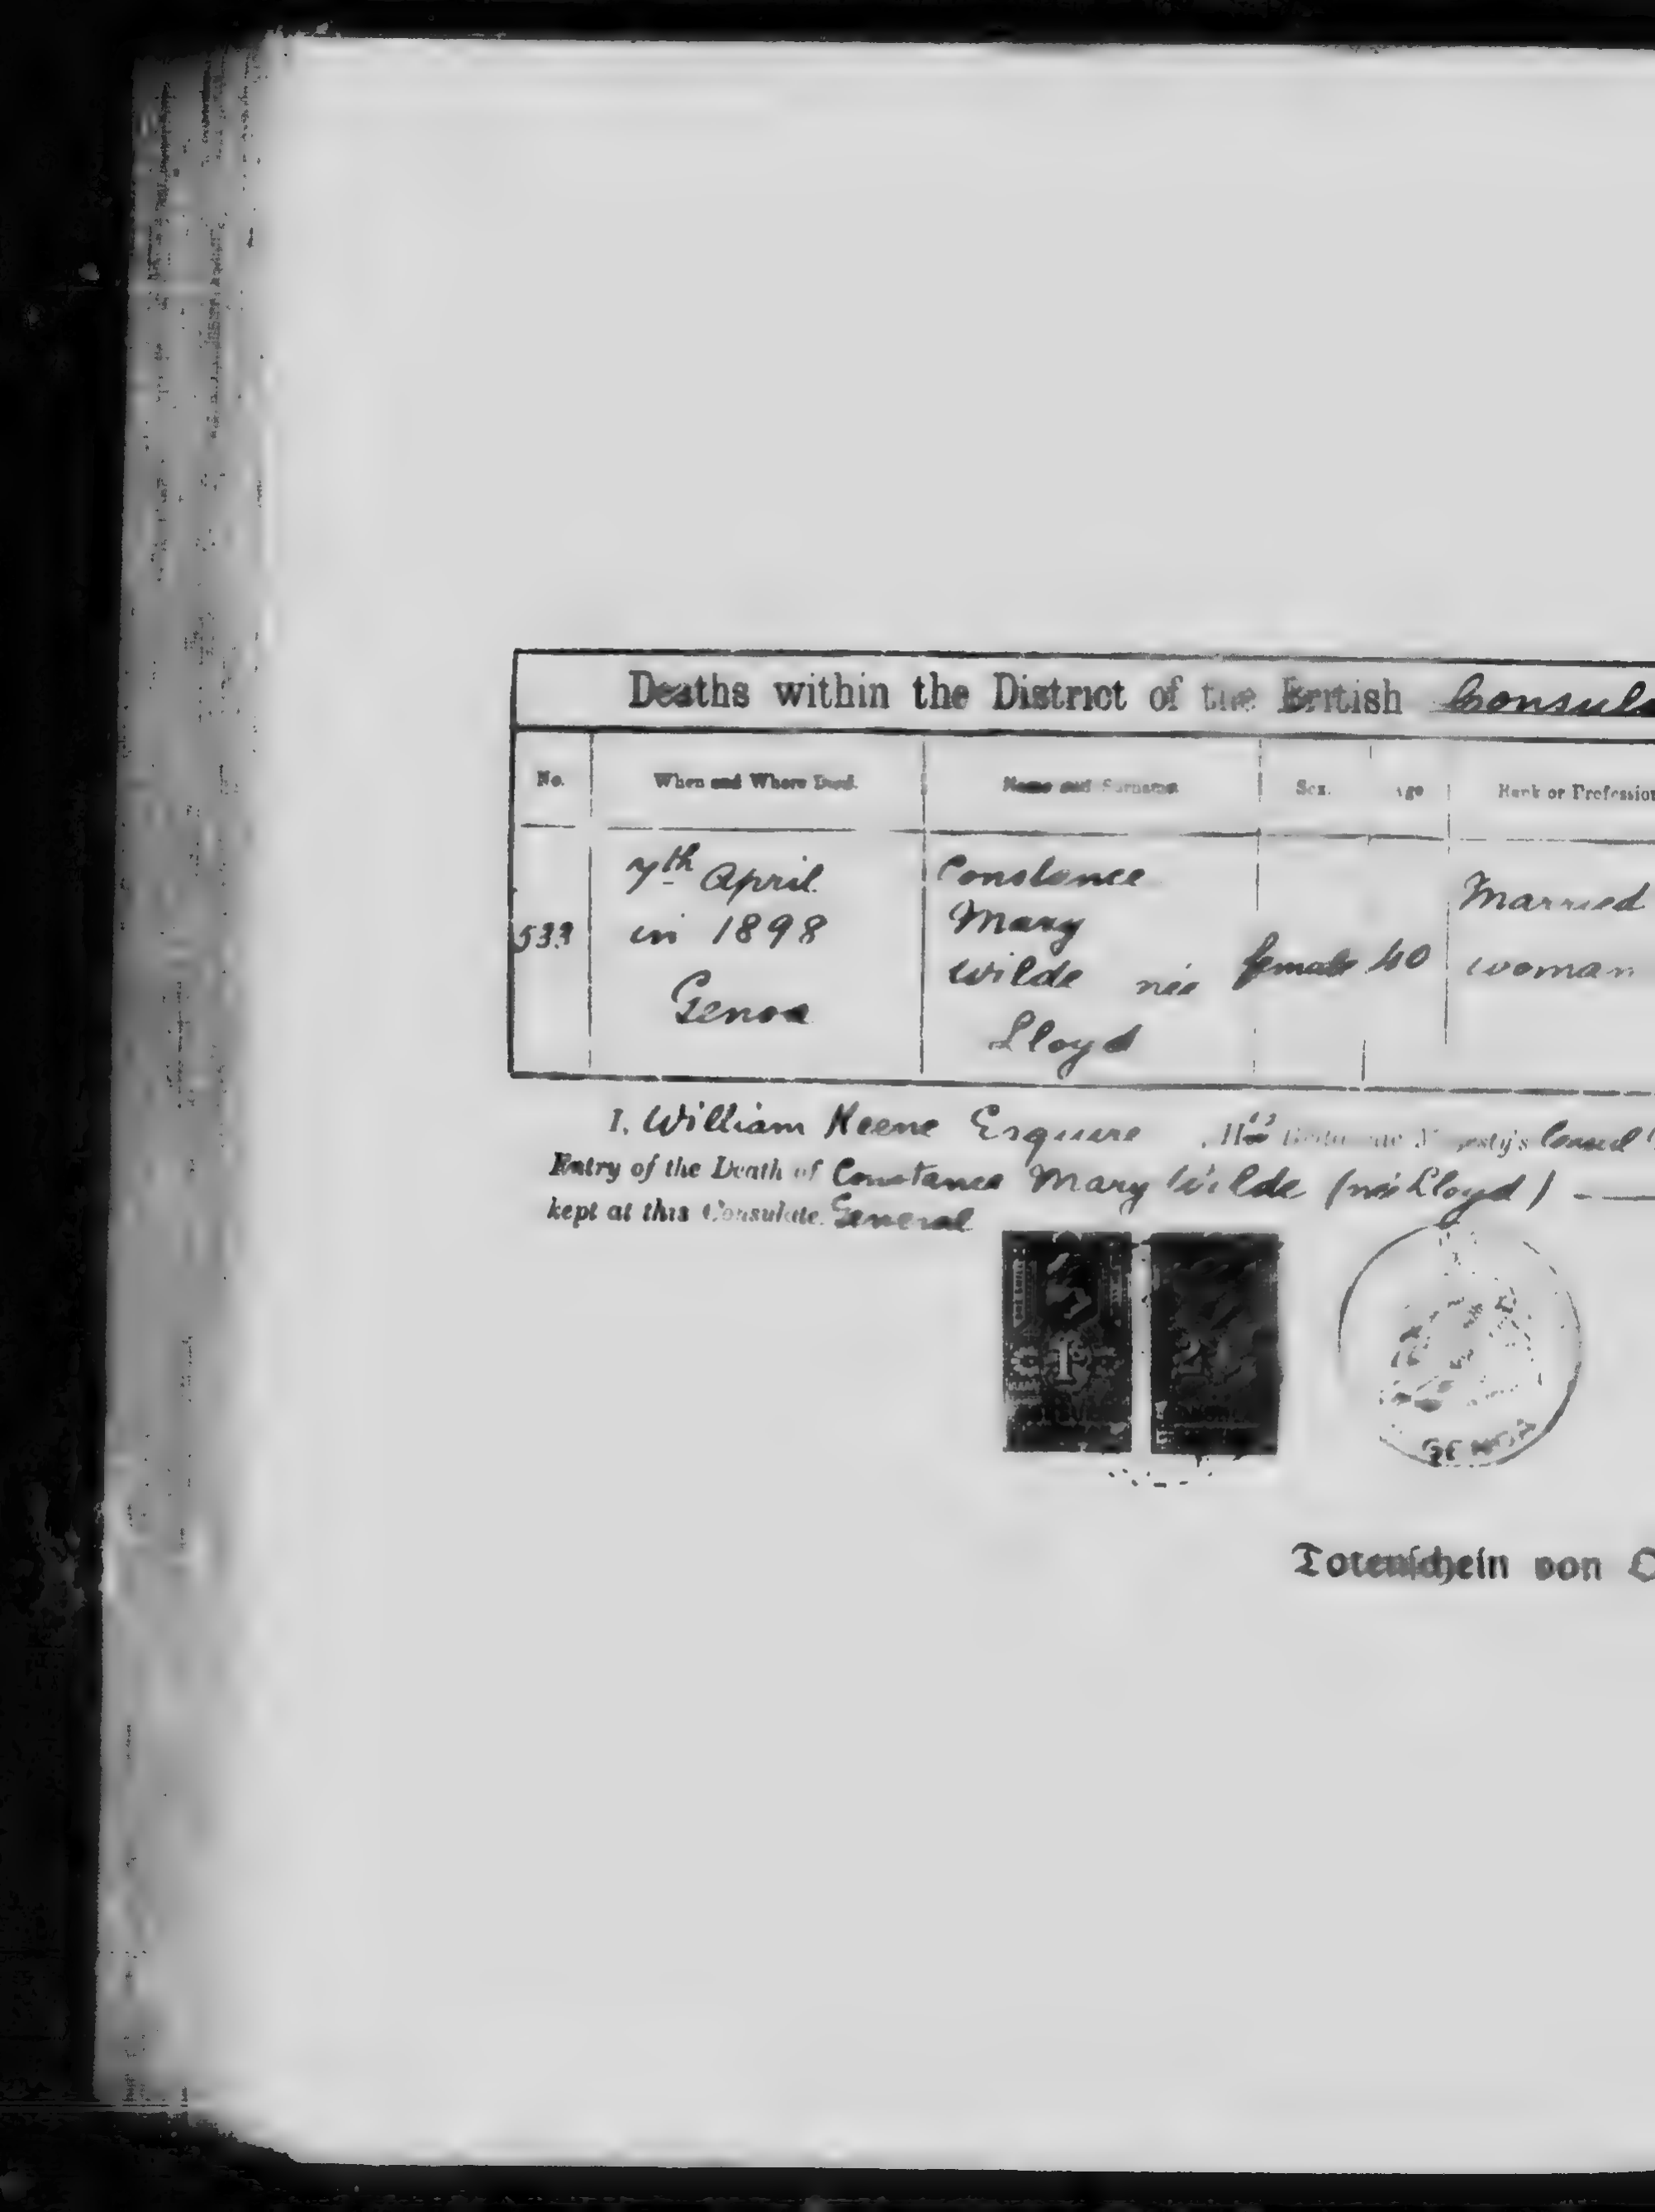 Deaths within the District of the British Consul
No. When and Where Died. Name and Surname Sex. Age Rank or Profession
7th April Constance Married
533 in 1898 Mary
Wilde née female 40 woman
Genoa
Lloyd
I, William Keene Esquire , His Britannic Majesty's Consul
Entry of the Death of Constance Mary Wilde (née Lloyd) —
kept at this Consulate General
1 2
GENOA
Totenschein von